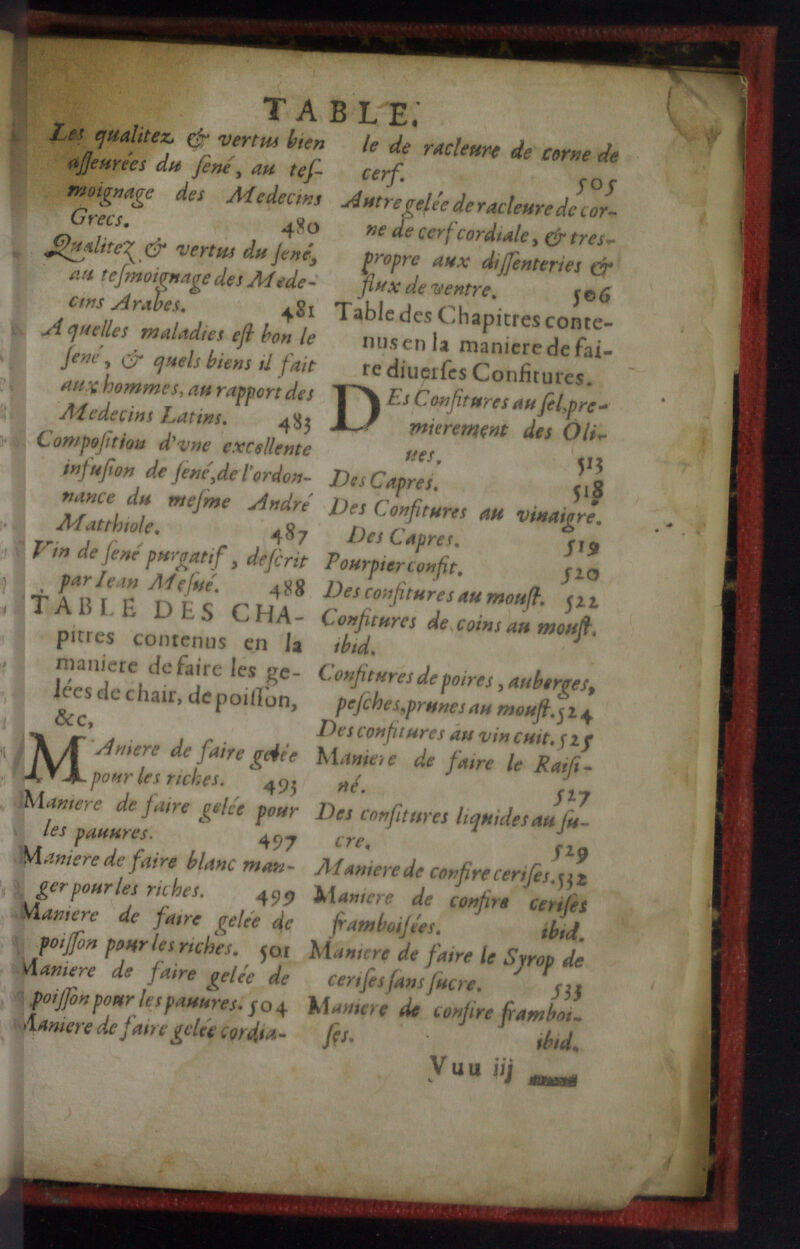 TABLE.
Les qualitez & vertus bien
asseurées du sené, au tes-
moignage des Medecins
Grecs. 480
Qualitez & vertus du sené,
au tesmoignage des Mede-
cins Arabes. 481
A quelles maladies est bon le
sené, & quels biens il fait
aux hommes, au rapport des
Medecins Latins. 483
Composition d'vne excellente
infusion de sené, de l'ordon-
nance du mesme André
Matthiole. 487
Vin de sené purgatif, descrit
par Iean Mesué. 488
TABLE DES CHA-
pitres contenus en la
maniere de faire les ge-
lées de chair, de poisson,
&c,
MAniere de faire gelée
pour les riches. 493
Maniere de faire gelée pour
les pauures. 497
Maniere de faire blanc man-
ger pour les riches. 499
Maniere de faire gelée de
poisson pour les riches. 501
Maniere de faire gelée de
poisson pour les pauures. 504
Maniere de faire gelée cordia-
le de racleure de corne de
cerf. 505
Autre gelée de racleure de cor-
ne de cerf cordiale, & tres-
propre aux dissenteries &
flux de ventre. 506
Table des Chapitres conte-
nus en la maniere de fai-
re diuerses Confitures.
DEs Confitures au sel, pre-
mierement des Oli-
ues. 513
Des Capres. 518
Des Confitures au vinaigre.
Des Capres. 519
Pourpier confit. 520
Des confitures au moust. 522
Confitures de coins au moust.
ibid.
Confitures de poires, auberges,
pesches, prunes au moust. 524
Des confitures au vin cuit. 525
Maniere de faire le Raisi-
né. 527
Des confitures liquides au su-
cre. 529
Maniere de confire cerises. 532
Maniere de confire cerises
framboisées. ibid.
Maniere de faire le Syrop de
cerises sans sucre. 533
Maniere de confire framboi-
ses. ibid.
Vuu iij